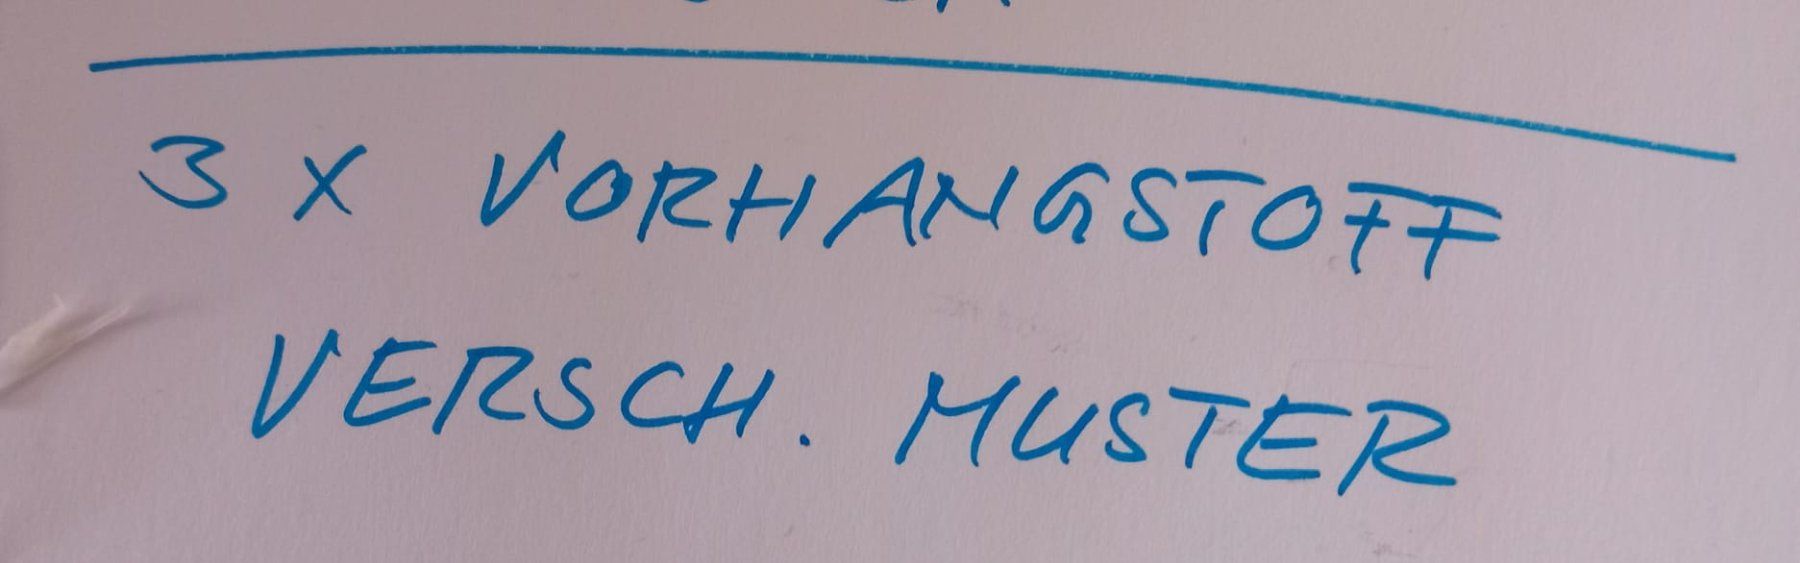 3 X VORHANGSTOFF
VERSCH. MUSTER